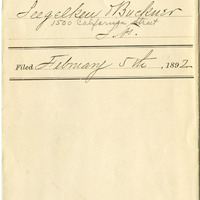 Siegelken & Buckner
1530 California Street
S.F.
Filed February 5th, 1892